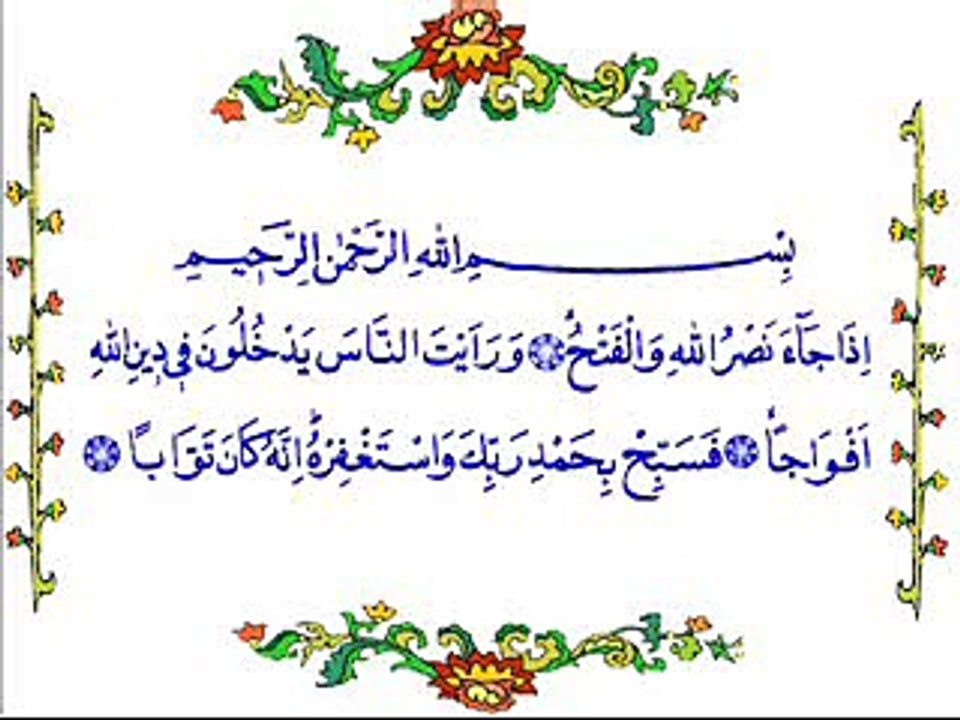 بِسْمِ اللهِ الرَّحْمٰنِ الرَّحِيمِ
اِذَا جَآءَ نَصْرُ اللهِ وَالْفَتْحُۙ وَرَاَيْتَ النَّاسَ يَدْخُلُونَ ف۪ي د۪ينِ اللهِ
اَفْوَاجاًۙ فَسَبِّحْ بِحَمْدِ رَبِّكَ وَاسْتَغْفِرْهُۜ اِنَّهُ كَانَ تَوَّاباً